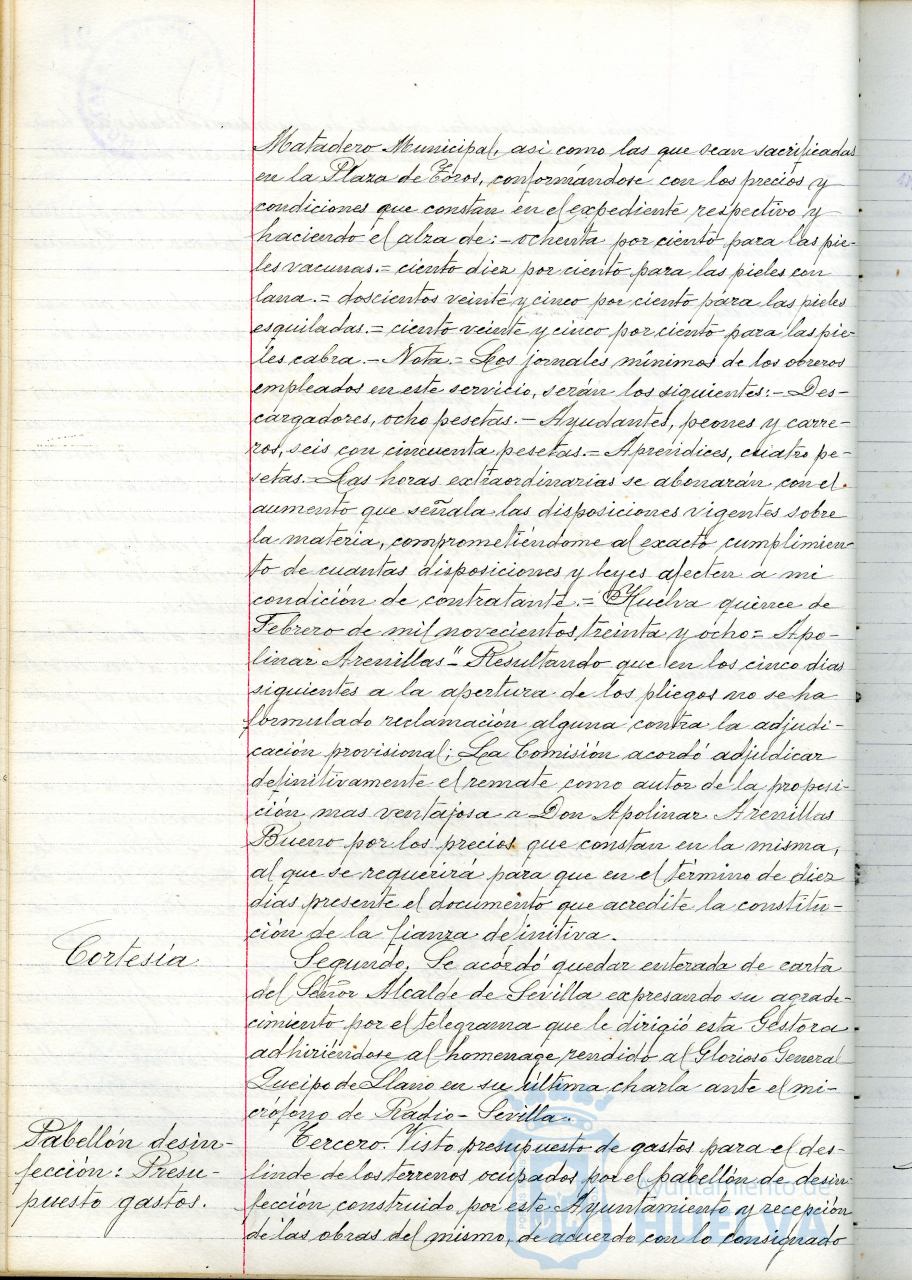 Matadero Municipal, asi como las que sean sacrificadas
en la Plaza de Toros, conformándose con los precios y
condiciones que constan en el expediente respectivo y
haciendo el alza de: – ochenta por ciento para las pie-
les vacunas. = ciento diez por ciento para las pieles con
lana. = doscientos veinte y cinco por ciento para las pieles
esquiladas. = ciento veinte y cinco por ciento para las pie-
les cabra. – Nota. = Los jornales mínimos de los obreros
empleados en este servicio, serán los siguientes: – Des-
cargadores, ocho pesetas. – Ayudantes, peones y carre-
ros, seis con cincuenta pesetas. = Aprendices, cuatro pe-
setas. – Las horas extraordinarias se abonarán con el
aumento que señala las disposiciones vigentes sobre
la materia, comprometiéndome al exacto cumplimien-
to de cuantas disposiciones y leyes afecten a mi
condición de contratante. = Huelva quince de
Febrero de mil novecientos treinta y ocho = Apo-
linar Arenillas" – Resultando que en los cinco dias
siguientes a la apertura de los pliegos no se ha
formulado reclamación alguna contra la adjudi-
cación provisional; La Comisión acordó adjudicar
definitivamente el remate como autor de la proposi-
ción mas ventajosa a Don Apolinar Arenillas
Bueno por los precios que constan en la misma,
al que se requerirá para que en el término de diez
dias presente el documento que acredite la constitu-
ción de la fianza definitiva.
Cortesía
Segundo. Se acordó quedar enterada de carta
del Señor Alcalde de Sevilla expresando su agrade-
cimiento por el telegrama que le dirigió esta Gestora
adhiriéndose al homenage rendido al Glorioso General
Queipo de Llano en su última charla ante el mi-
crófono de Radio – Sevilla.
Pabellón desin-
fección: Presu-
puesto gastos.
Tercero. Visto presupuesto de gastos para el des-
linde de los terrenos ocupados por el pabellón de desin-
fección construido por este Ayuntamiento y recepción
de las obras del mismo, de acuerdo con lo consignado
Ayuntamiento de
HUELVA